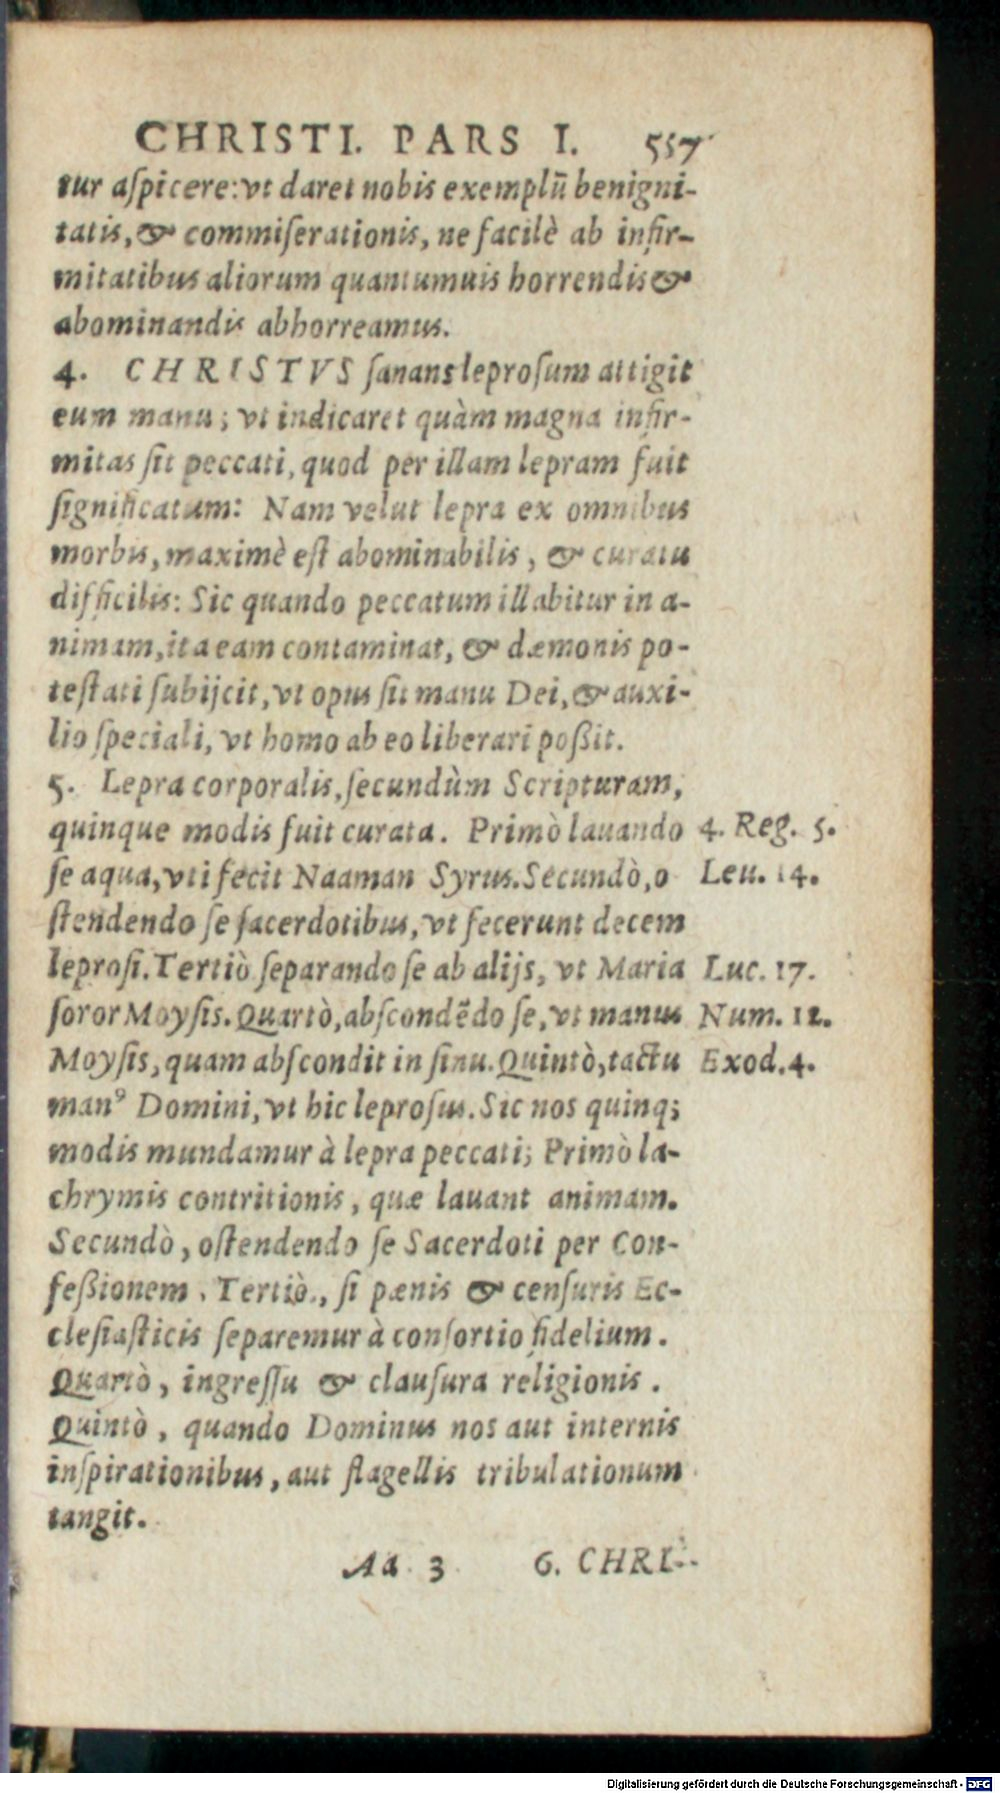 CHRISTI. PARS I. 557
tur aſpicere: vt daret nobis exemplū benigni-
tatis, & commiſerationis, ne facilè ab infir-
mitatibus aliorum quantumuis horrendis &
abominandis abhorreamus.
4. CHRISTVS ſanans leproſum attigit
eum manu; vt indicaret quàm magna infir-
mitas ſit peccati, quod per illam lepram fuit
ſignificatum: Nam velut lepra ex omnibus
morbis, maximè eſt abominabilis, & curatu
difficilis: Sic quando peccatum illabitur in a-
nimam, ita eam contaminat, & dæmonis po-
teſtati ſubijcit, vt opus ſit manu Dei, & auxi-
lio ſpeciali, vt homo ab eo liberari poßit.
5. Lepra corporalis, ſecundùm Scripturam,
quinque modis fuit curata. Primò lauando 4. Reg. 5.
ſe aqua, vti fecit Naaman Syrus. Secundò, o Leu. 14.
ſtendendo ſe ſacerdotibus, vt fecerunt decem
leproſi. Tertiò ſeparando ſe ab alijs, vt Maria Luc. 17.
ſoror Moyſis. Quartò, abſcondēdo ſe, vt manus Num. 12.
Moyſis, quam abſcondit in ſinu. Quintò, tactu Exod. 4.
manꝰ Domini, vt hic leproſus. Sic nos quinq;
modis mundamur à lepra peccati; Primò la-
chrymis contritionis, quæ lauant animam.
Secundò, oſtendendo ſe Sacerdoti per Con-
feßionem. Tertiò, ſi pænis & cenſuris Ec-
cleſiaſticis ſeparemur à conſortio fidelium.
Quartò, ingreſſu & clauſura religionis.
Quintò, quando Dominus nos aut internis
inſpirationibus, aut flagellis tribulationum
tangit.
Aa 3 6. CHRI-
Digitalisierung gefördert durch die Deutsche Forschungsgemeinschaft - DFG